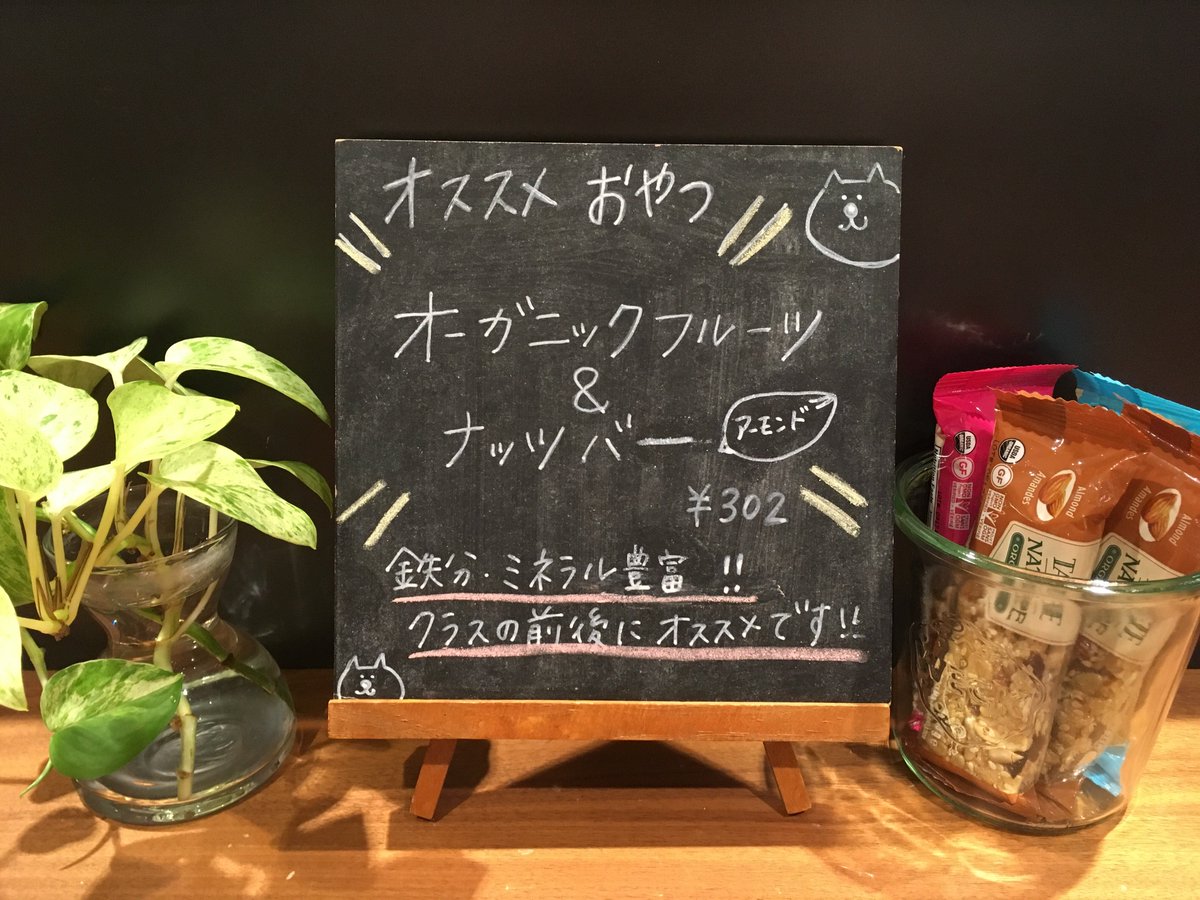 オススメ おやつ
オーガニックフルーツ
&
ナッツバー アーモンド
¥302
鉄分・ミネラル豊富!!
クラスの前後にオススメです!!
USDA
ORGANIC
GF
Almond
Amandes
USDA
ORGANIC
GF
Almond
Amandes